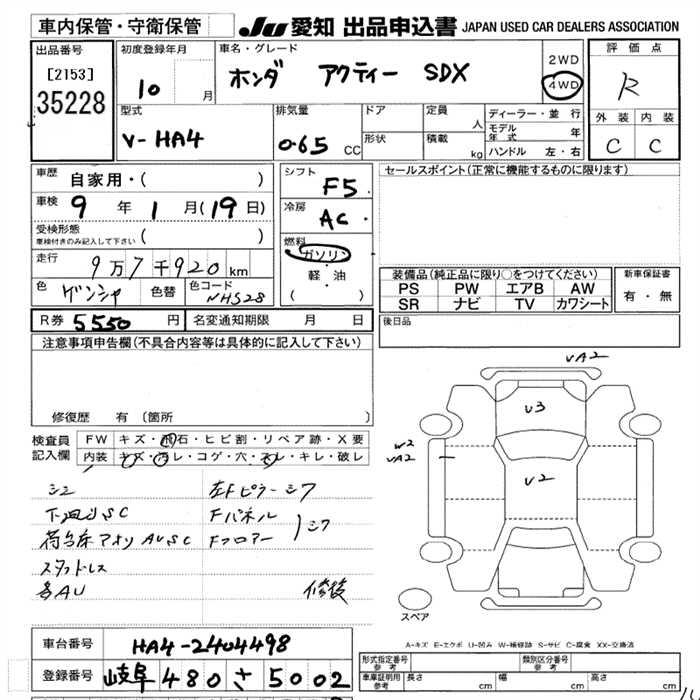 車内保管・守衛保管
JU 愛知 出品申込書 JAPAN USED CAR DEALERS ASSOCIATION
出品番号
[2153]
35228
初度登録年月
10 月
車名・グレード
ホンダ アクティー SDX
2WD
4WD
評価点
R
外装 内装
C C
型式
V-HA4
排気量
0.65 CC
ドア
形状
定員 人
積載 kg
ディーラー・並行
モデル年式 年
ハンドル 左・右
車歴 自家用・( )
車検 9年 1月(19日)
受検形態
車検付きのみ記入して下さい ( )
走行 9万7千920km
色 ゲンシャ 色替 色コード NHS28
シフト F5
冷房 AC
燃料 ガソリン・軽油
( )
セールスポイント(正常に機能するものに限ります)
装備品(純正品に限り○をつけてください)
PS PW エアB AW
SR ナビ TV カワシート
新車保証書
有・無
R券 5550円 名変通知期限 月 日
後日品
注意事項申告欄(不具合内容等は具体的に記入して下さい)
修復歴 有 (箇所 )
検査員記入欄
FW キズ・飛石・ヒビ割・リペア跡・X要
内装 キズ・汚レ・コゲ・穴・スレ・キレ・破レ
シミ 左Fピラーシワ
下廻りSC Fパネル
荷台床アオリAUSC Fフロアー シワ
スタッドレス
各AU 修後
VA2
V3
W2
VA2
V2
スペア
A-キズ E-エクボ U-凹み W-補修跡 S-サビ C-腐食 XX-交換済
車台番号 HA4-2404498
登録番号 岐阜 480 さ 5002
形式指定番号 参考 類別区分番号 参考
車庫証明用 参考 長さ cm 幅 cm 高さ cm